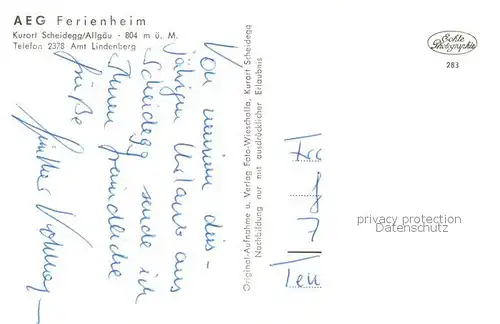 AEG Ferienheim
Kurort Scheidegg/Allgäu - 804 m ü. M.
Telefon 2378 Amt Lindenberg
Echte
Photographie
283
Von meinem dies-
jährigen Urlaub aus
Scheidegg sende ich
Ihnen freundliche
Grüße
Original-Aufnahme u. Verlag Foto-Wieschalla, Kurort Scheidegg
Nachbildung nur mit ausdrücklicher Erlaubnis
privacy protection
Datenschutz